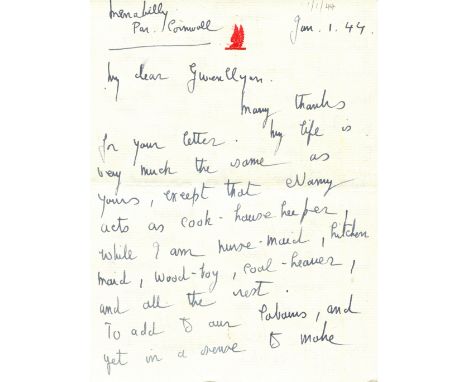 Menabilly
Par. Cornwall
1/1/44
Jan. 1. 44.
My dear Gwenllyan.
Many thanks
for your letter. My life is
very much the same as
yours, except that Nanny
acts as cook-house-keeper,
while I am nurse-maid, kitchen
maid, wood-boy, coal-heaver,
and all the rest.
To add to our labours, and
yet in a sense to make